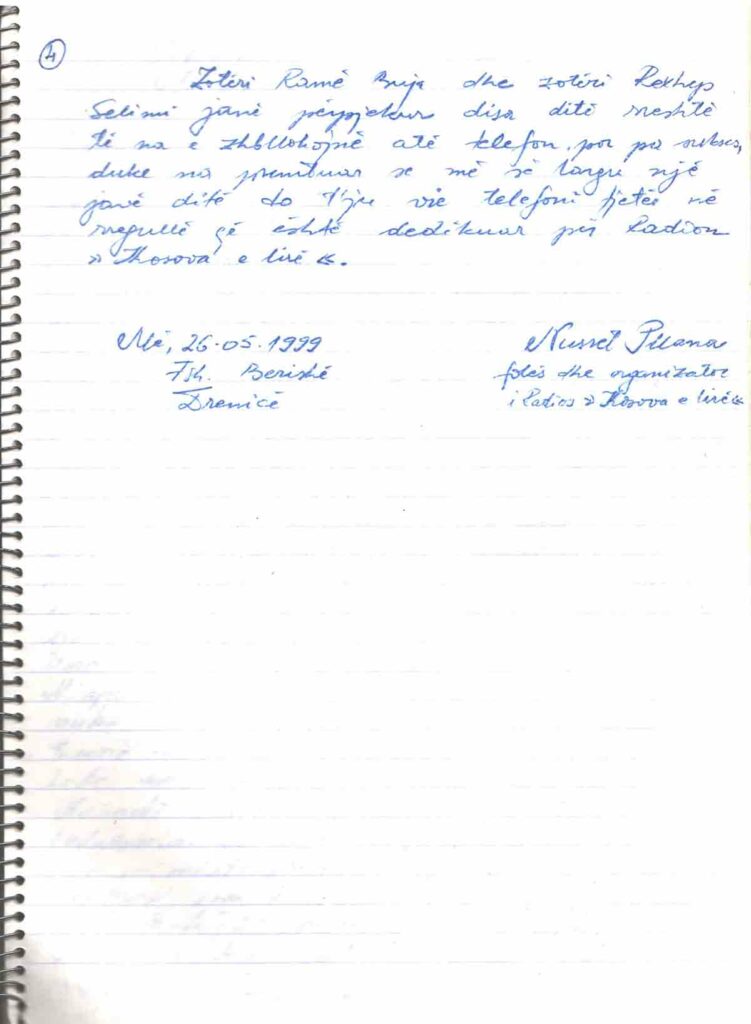 4
Zotëri Ramë Buja dhe zotëri Rexhep
Selimi janë përpjekur disa ditë rreshtë
të na e zhbllokojnë atë telefon, por pa sukses,
duke na premtuar se më së largu një
javë ditë do t'ju vie telefoni tjetër në
rregullë që është dedikuar për Radion
» Kosova e lirë «.
Më, 26-05-1999
Fsh. Berishë
Drenicë
Nusret Pllana
folës dhe organizator
i Radios » Kosova e lirë «